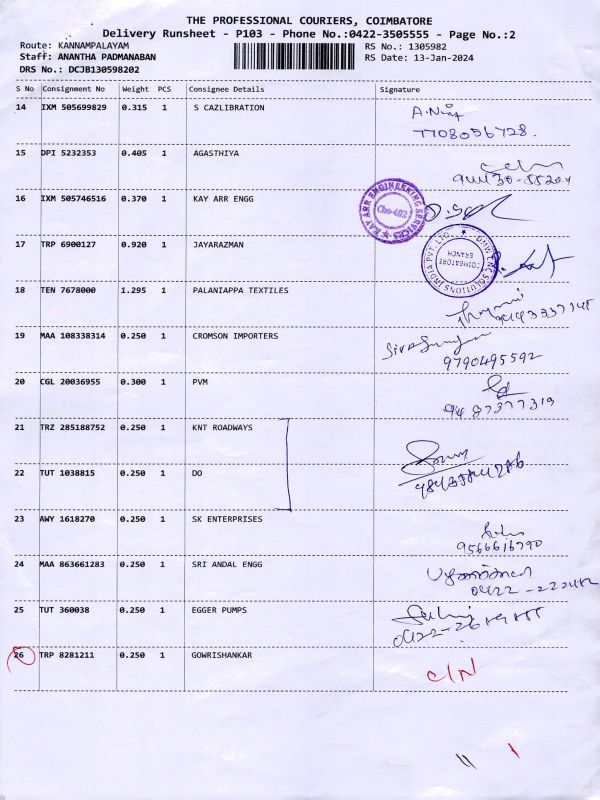 THE PROFESSIONAL COURIERS, COIMBATORE
Delivery Runsheet - P103 - Phone No.:0422-3505555 - Page No.:2
Route: KANNAMPALAYAM
Staff: ANANTHA PADMANABAN
DRS No.: DCJB130598202
RS No.: 1305982
RS Date: 13-Jan-2024
S No Consignment No Weight PCS Consignee Details Signature
14 IXM 505699829 0.315 1 S CAZLIBRATION
7708056728.
15 DPI 5232353 0.405 1 AGASTHIYA
16 IXM 505746516 0.370 1 KAY ARR ENGG
KAY ARR ENGINEERING SERVICES
Cbe-402
17 TRP 6900127 0.920 1 JAYARAZMAN
COIMBATORE
BRANCH
18 TEN 7678000 1.295 1 PALANIAPPA TEXTILES
19 MAA 108338314 0.250 1 CROMSON IMPORTERS
9790495592
20 CGL 20036955 0.300 1 PVM
9487377319
21 TRZ 285188752 0.250 1 KNT ROADWAYS
22 TUT 1038815 0.250 1 DO
23 AWY 1618270 0.250 1 SK ENTERPRISES
9566616790
24 MAA 863661283 0.250 1 SRI ANDAL ENGG
25 TUT 360038 0.250 1 EGGER PUMPS
26 TRP 8281211 0.250 1 GOWRISHANKAR
C/N